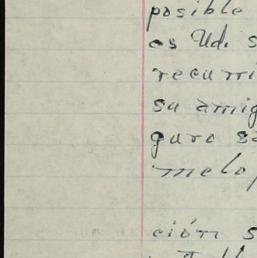 posible
es Ud. s
recurri
su amig
guro se
melo,
ción s